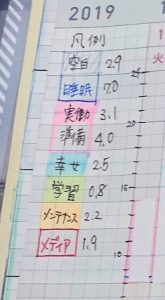 2019
凡例
空白 2.9
睡眠 7.0
実働 3.1
準備 4.0
幸せ 2.5
学習 0.8
メンテナンス 2.2
メディア 1.9
火
15
10